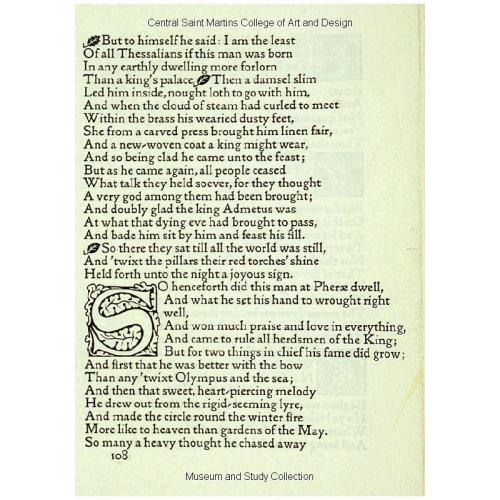 Central Saint Martins College of Art and Design
But to himself he said: I am the least
Of all Thessalians if this man was born
In any earthly dwelling more forlorn
Than a king's palace. Then a damsel slim
Led him inside, nought loth to go with him,
And when the cloud of steam had curled to meet
Within the brass his wearied dusty feet,
She from a carved press brought him linen fair,
And a new-woven coat a king might wear,
And so being clad he came unto the feast;
But as he came again, all people ceased
What talk they held soever, for they thought
A very god among them had been brought;
And doubly glad the king Admetus was
At what that dying eve had brought to pass,
And bade him sit by him and feast his fill.
So there they sat till all the world was still,
And 'twixt the pillars their red torches' shine
Held forth unto the night a joyous sign.
SO henceforth did this man at Pheræ dwell,
And what he set his hand to wrought right
well,
And won much praise and love in everything,
And came to rule all herdsmen of the King;
But for two things in chief his fame did grow;
And first that he was better with the bow
Than any 'twixt Olympus and the sea;
And then that sweet, heart-piercing melody
He drew out from the rigid-seeming lyre,
And made the circle round the winter fire
More like to heaven than gardens of the May.
So many a heavy thought he chased away
108
Museum and Study Collection